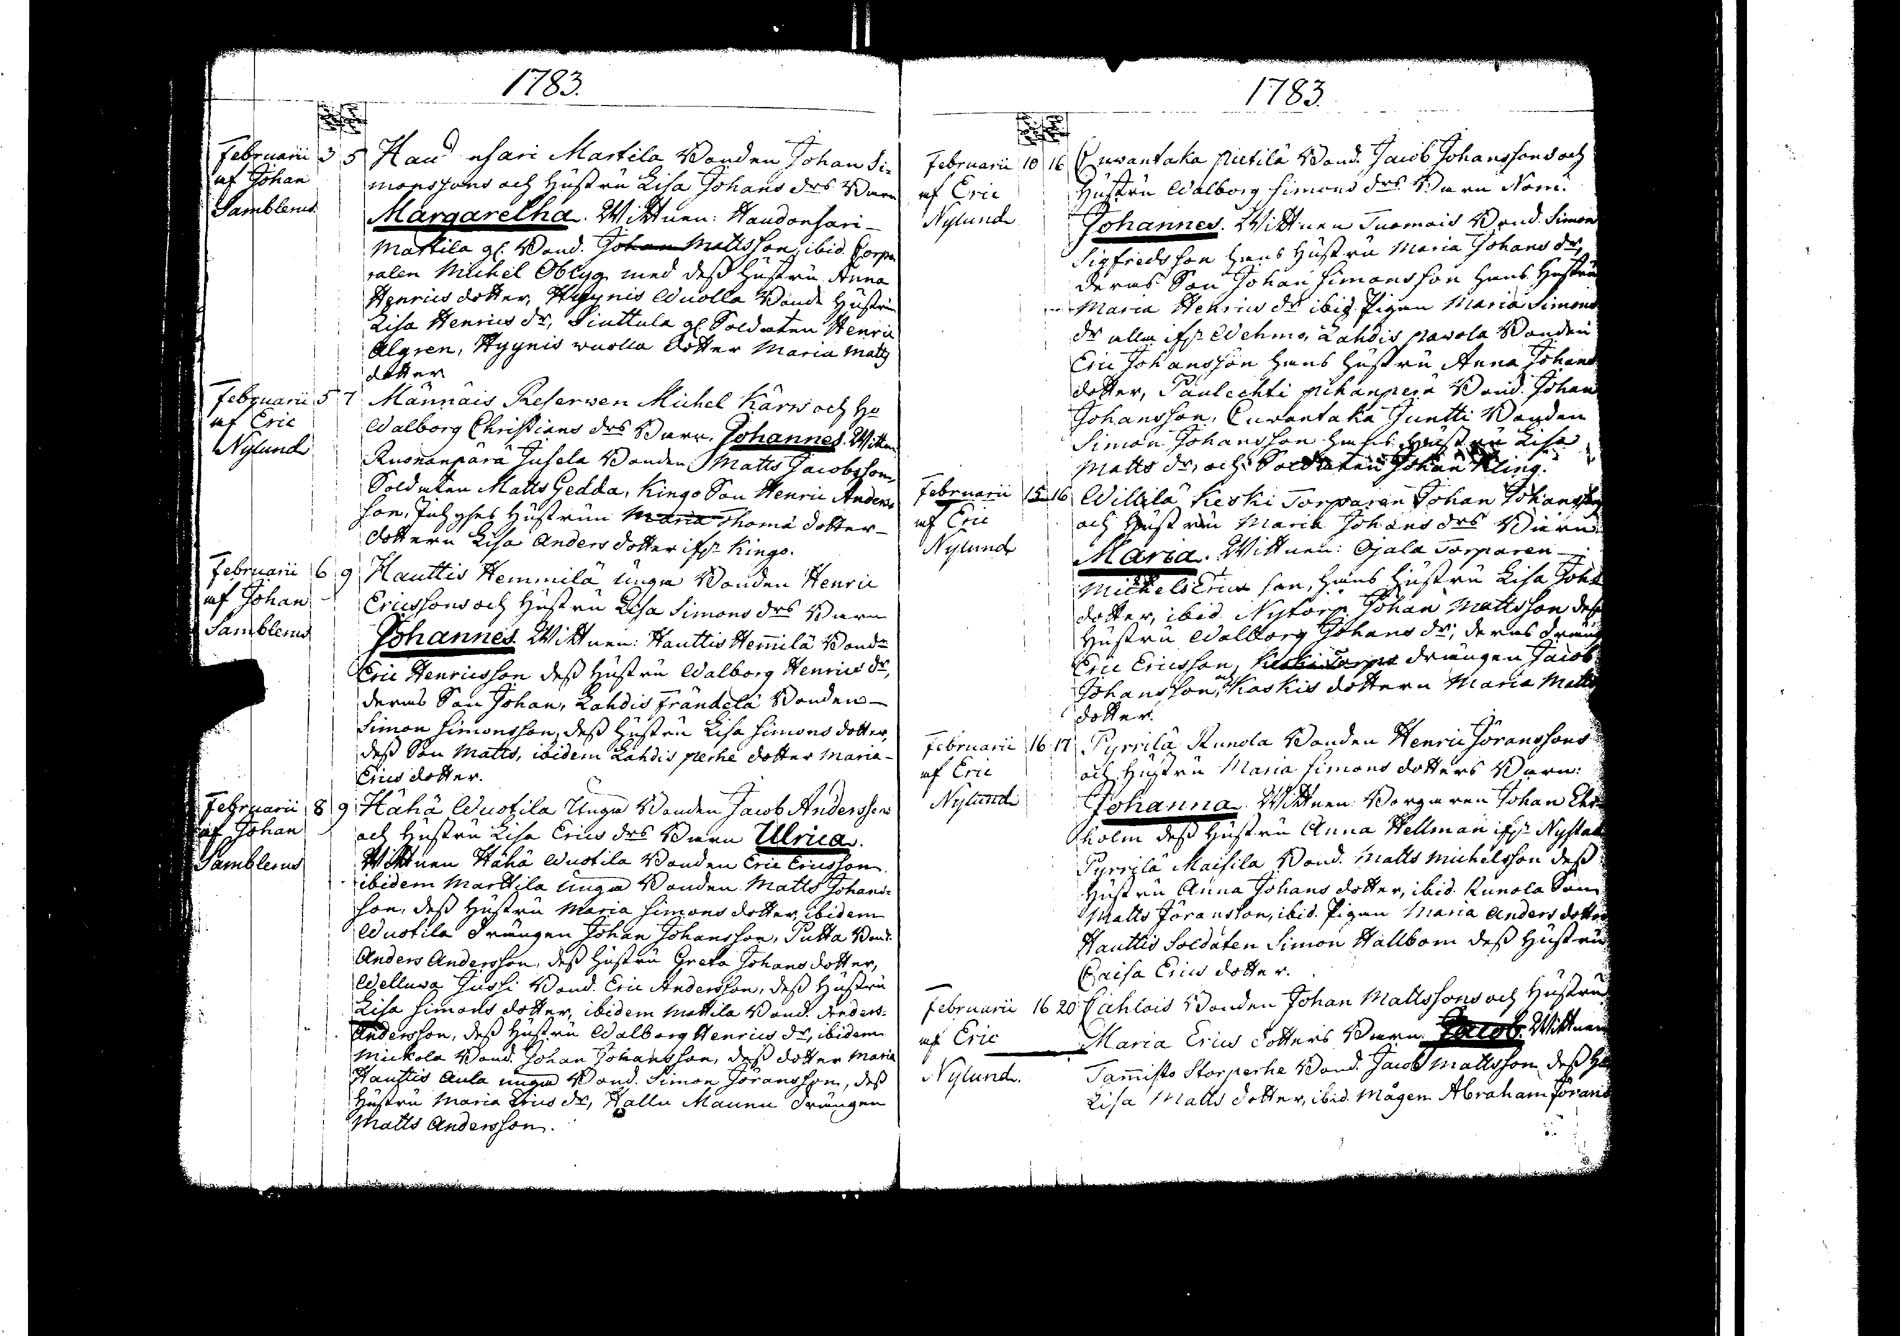 1783.
Februarii 3 5 Haud nsari Martila Bonden Johan Si-
af Johan monssons och Hustru Lisa Johans drs Barn
Samblerus. Margaretha. Wittnen: Haudonsari-
Martila gl. Bond. Johan Mattsson, ibid. Corpo
ralen Michel Oblyg med dess Hustru Anna
Henrics dotter, Hyynis Wuolla Bonde Hustru
Lisa Henrics dr, Siuttula gl. Soldaten Henric
Algren, Hyynis wuolla dotter Maria Matts
dotter
Februarii 5 7 Männäis Reserwen Michel Kärw och Ho
af Eric Walborg Christians drs Barn. Johannes. Wittnen
Nylund Ruonanpärä Jusela Bonden Matts Jacobsson,
Soldaten Matts Gedda, Kingo Son Henric Anders
son, Hustrun Maria Thomæ dotter-
dottern Lisa Anders dotter ifr. Kingo.
Februarii 6 9 Hauttis Hemmilä Unga Bonden Henric
af Johan Ericssons och Hustru Lisa Simons drs Barn
Samblerus Johannes. Wittnen: Hauttis Hemilä Bondn
Eric Henricsson dess Hustru Walborg Henrics dr,
deras Son Johan, Lahdis Fräntelä Bonden-
Simon Simonsson, dess Hustru Lisa Simons dotter,
dess Son Matts, ibidem Lahdis perhe dotter Maria-
Erics dotter.
Februarii 8 9 Hähä Wuotila Unga Bonden Jacob Anderssons
af Johan och Hustru Lisa Erics drs Barn Ulrica.
Samblerus Wittnen Hähä Wuotila Bonden Eric Ericsson
ibidem Marttila Unga Bonden Matts Johans-
son, dess Hustru Maria Simons dotter, ibidem
Wuotila Drängen Johan Johansson, Putta Bond.
Anders Andersson, dess Hustru Greta Johans dotter,
Welluwa Jussi Bond. Eric Andersson, dess Hustru
Lisa Simons dotter, ibidem Mattila Bond. Anders-
Andersson, dess Hustru Walborg Henrics dr, ibidem
Mickola Bond. Johan Johansson, dess dotter Maria
Hauttis Aula unga Bond. Simon Jöransson, dess
Hustru Maria Erics dr, Hallu Maunu Drängen
Matts Andersson.
1783.
Februarii 10 16 Cuwantaka Pietilä Bond. Jacob Johanssons och
af Eric Hustru Walborg Simons drs Barn Nom.
Nylund Johannes. Wittnen Tuomois Bond. Simon
Sigfredsson hans Hustru Maria Johans dr,
deras Son Johan Simonsson hans Hustru
Maria Henrics dr ibid. Pigan Maria Simons
dr alla ifr. Wehmo, Lahdis Pawola Bonden
Eric Johansson hans Hustru Anna Johans
dotter, Paulechti pihanperä Bond. Johan
Johansson, Cuwantaka Juntti Bonden
Simon Johansson hans Hustru Lisa
Matts dr, och Soldaten Johan Kling.
Februarii 15 16 Willilä Keski Torparen Johan Johanssons
af Eric och Hustru Maria Johans drs Barn
Nylund Maria. Wittnen: Ojala Torparen-
Michel Erics son, hans Hustru Lisa Joh.
dotter, ibid. Nytorp. Johan Mattsson dess
Hustru Walborg Johans dr, deras dräng
Eric Ericsson, Keski Torpa drängen Jacob
Johansson, och Kaskis dottern Maria Matts
dotter.
Februarii 16 17 Pyrrilä Runola Bonden Henric Jöranssons
af Eric och Hustru Maria Simons dotters Barn:
Nylund Johanna. Wittnen: Borgaren Johan Ehr-
holm dess Hustru Anna Hellman ifr. Nystad
Pyrrilä Maisila Bond. Matts Michelsson dess
Hustru Anna Johans dotter, ibid. Runola Son
Matts Jöransson, ibid. Pigan Maria Anders dotter
Hauttis Soldaten Simon Hallbom dess Hustru
Caisa Erics dotter.
Februarii 16 20 Cahlois Bonden Johan Mattssons och Hustru
af Eric Maria Erics dotters Barn. Jacob. Wittnen
Nylund. Tamisto Storperhe Bond. Jacob Mattsson dess Hu
Lisa Matts dotter, ibid. Mågen Abraham Jörans